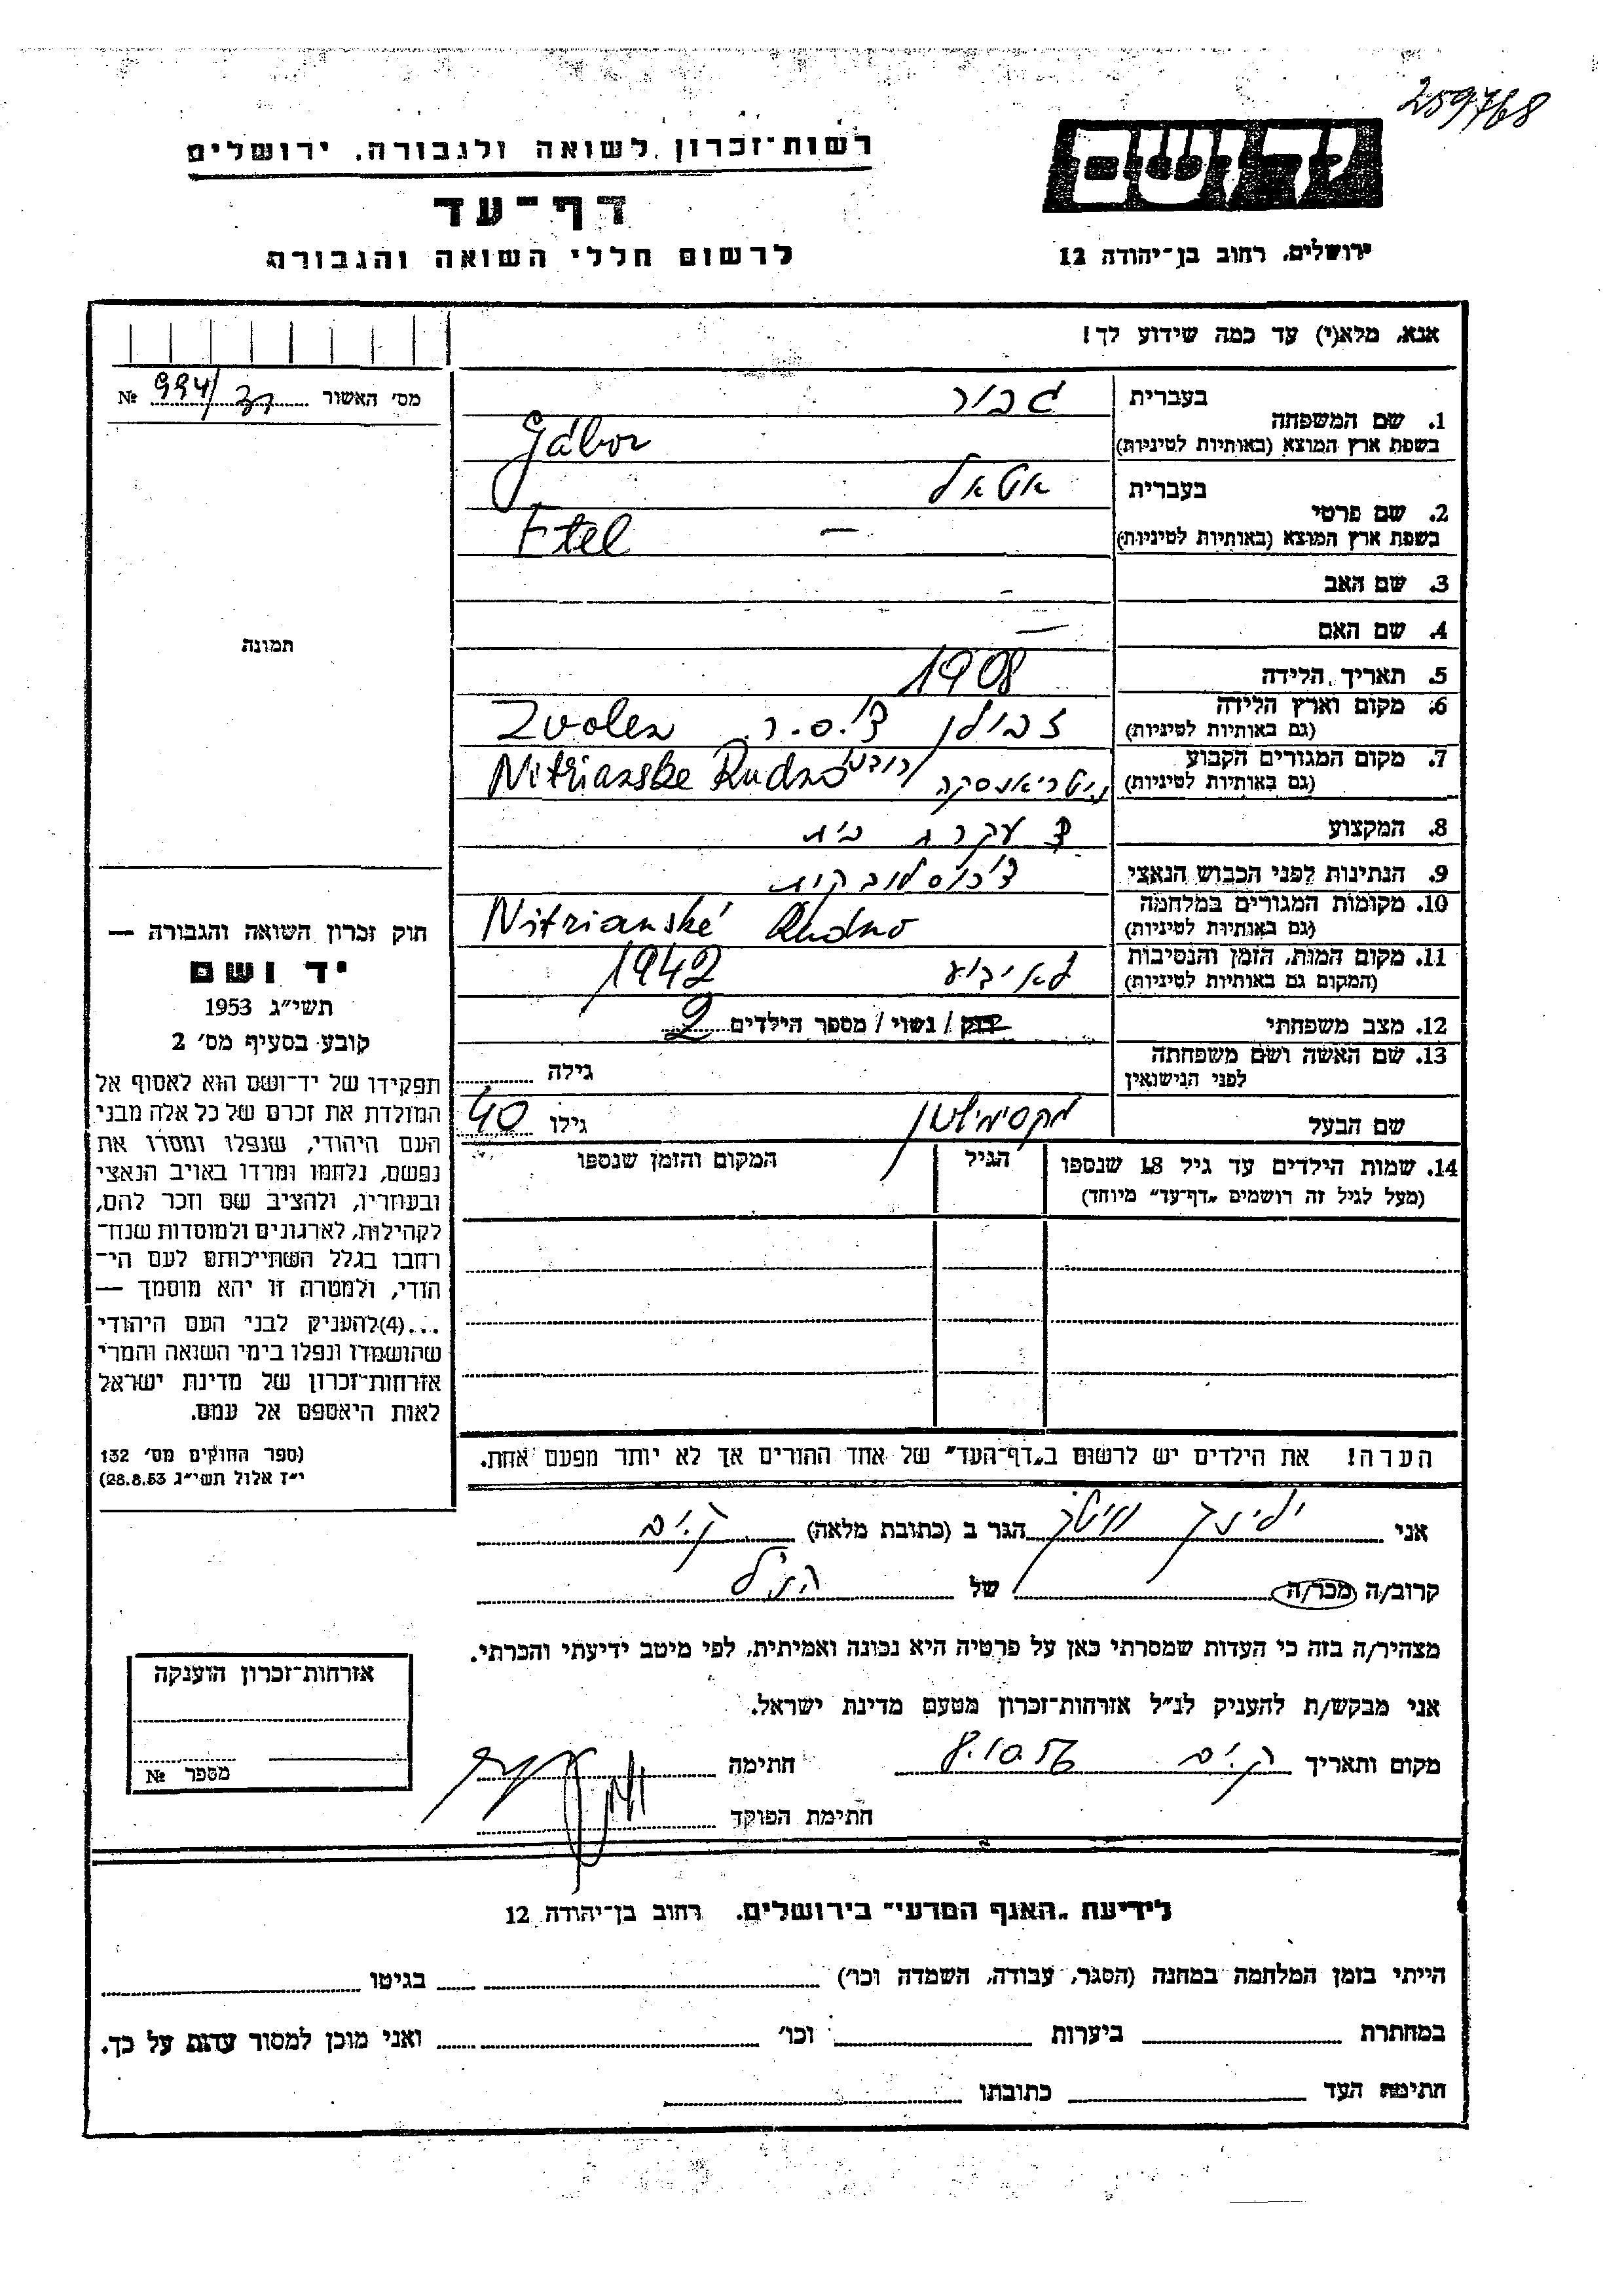 259768
יד ושם
רשות־זכרון לשואה ולגבורה, ירושלים
דף־עד
לרשום חללי השואה והגבורה
ירושלים, רחוב בן־יהודה 12
אנא, מלא(י) עד כמה שידוע לך!
מס׳ האשור 994/ № 
1. שם המשפחה
בעברית גבור
בשפת ארץ המוצא (באותיות לטיניות) Gábor
2. שם פרטי
בעברית אטאל
בשפת ארץ המוצא (באותיות לטיניות) Etel —
3. שם האב -
4. שם האם —
5. תאריך הלידה 1908
6. מקום וארץ הלידה
(גם באותיות לטיניות) זבולן צ'.ס.ר. Zvolen
7. מקום המגורים הקבוע
(גם באותיות לטיניות) ניטריאנסקה רודנו Nitrianske Rudno
8. המקצוע עקרת בית
9. הנתינות לפני הכבוש הנאצי צ'כוסלובקית
10. מקומות המגורים במלחמה
(גם באותיות לטיניות) Nitrianské Rudno
11. מקום המות, הזמן והנסיבות
(המקום גם באותיות לטיניות) לא ידוע 1942
12. מצב משפחתי רוק / נשוי / מספר הילדים 2
13. שם האשה ושם משפחתה
לפני הנישואין גילה
שם הבעל מקסימיליאן גילו 40
14. שמות הילדים עד גיל 18 שנספו
(מעל לגיל זה רושמים „דף־עד” מיוחד)
הגיל
המקום והזמן שנספו
הערה! את הילדים יש לרשום ב„דף־העד” של אחד ההורים אך לא יותר מפעם אחת.
תמונה
חוק זכרון השואה והגבורה —
יד ושם
תשי״ג 1953
קובע בסעיף מס׳ 2
תפקידו של יד־ושם הוא לאסוף אל
המולדת את זכרם של כל אלה מבני
העם היהודי, שנפלו ומסרו את
נפשם, נלחמו ומרדו באויב הנאצי
ובעוזריו, ולהציב שם וזכר להם,
לקהילות, לארגונים ולמוסדות שנח־
רבו בגלל השתייכותם לעם הי־
הודי, ולמטרה זו יהא מוסמך —
...(4)להעניק לבני העם היהודי
שהושמדו ונפלו בימי השואה והמרי
אזרחות־זכרון של מדינת ישראל
לאות היאספם אל עמם.
(ספר החוקים מס׳ 132
י״ז אלול תשי״ג 28.8.53)
אני הגר ב (כתובת מלאה) ק.ים
קרוב/ה מכר/ה של הנ״ל
מצהיר/ה בזה כי העדות שמסרתי כאן על פרטיה היא נכונה ואמיתית, לפי מיטב ידיעתי והכרתי.
אני מבקש/ת להעניק לנ״ל אזרחות־זכרון מטעם מדינת ישראל.
מקום ותאריך ק.ים 8.10.56 חתימה
חתימת הפוקד
אזרחות־זכרון הוענקה
מספר №
לידיעת „האגף המדעי” בירושלים, רחוב בן־יהודה 12
הייתי בזמן המלחמה במחנה (הסגר, עבודה, השמדה וכו׳) בגיטו
במחתרת ביערות וכו׳ ואני מוכן למסור עדות על כך.
חתימת העד כתובתו